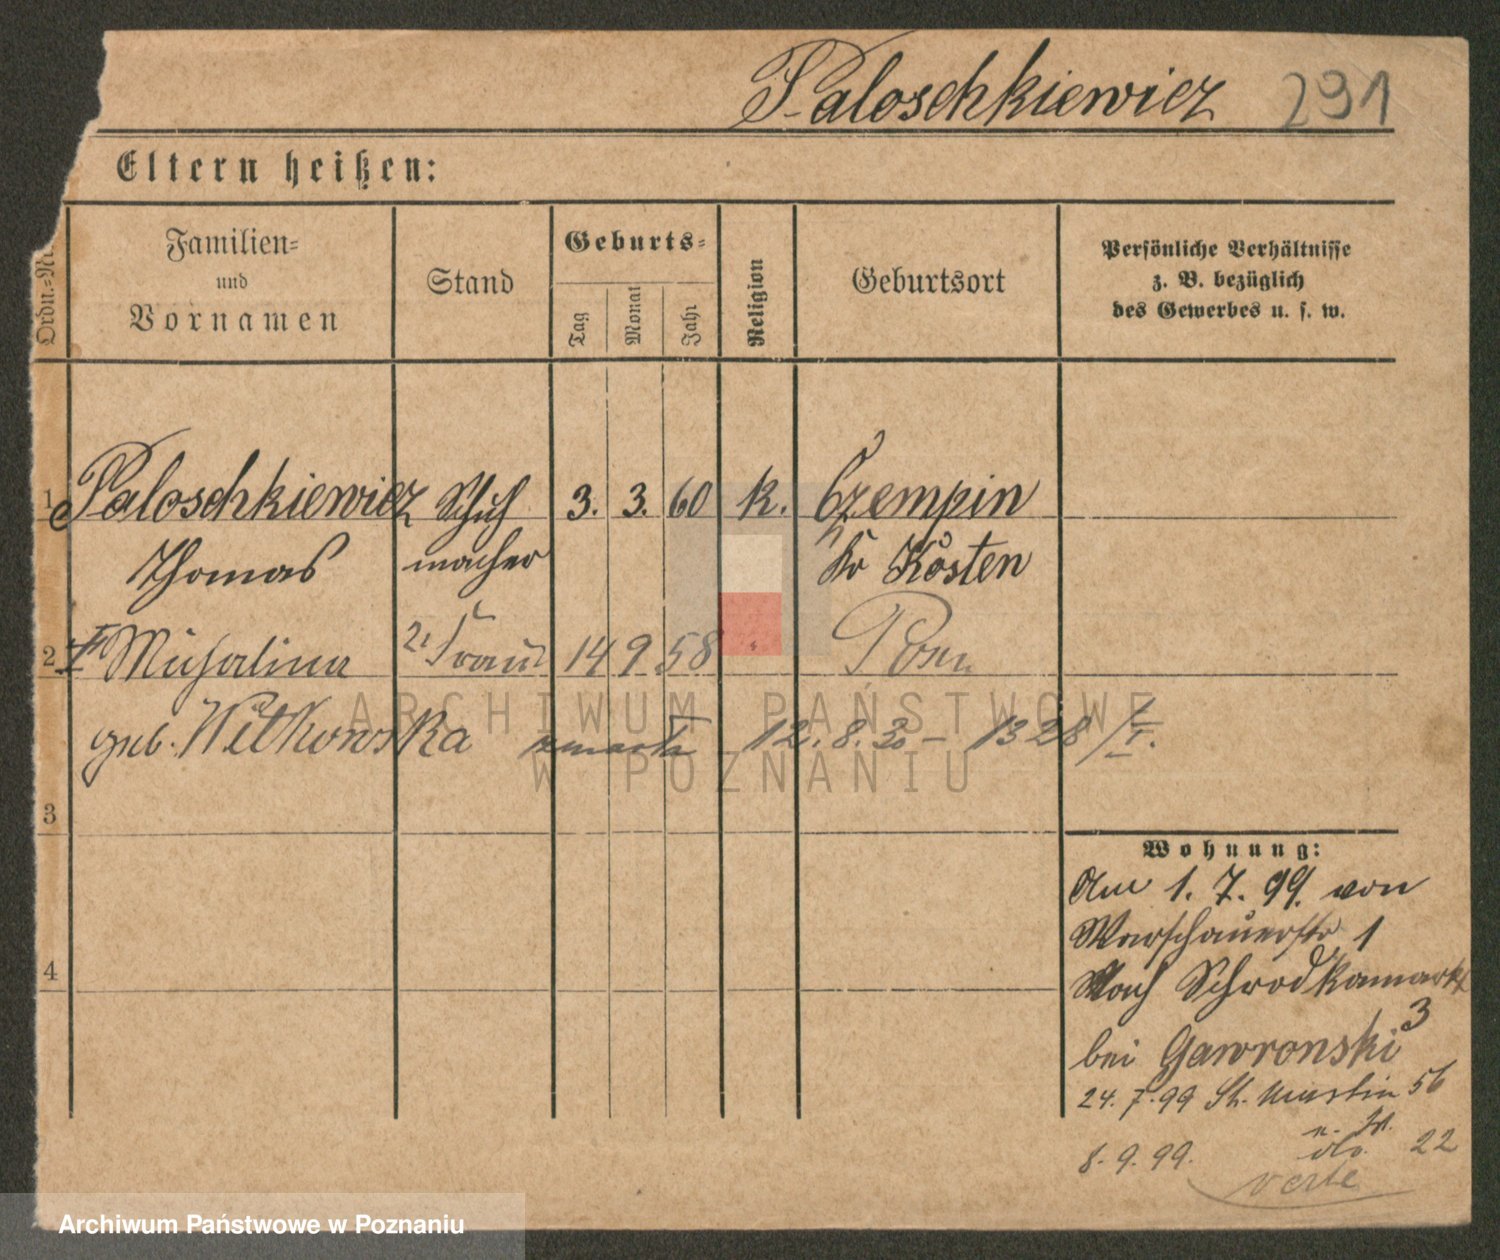 Paloschkiewicz 291
Eltern heißen:
Ordn.-Nr.
Familien-
und
Vornamen
Stand
Geburts-
Tag
Monat
Jahr
Religion
Geburtsort
Persönliche Verhältnisse
z. B. bezüglich
des Gewerbes u. s. w.
1 Paloschkiewicz Schuh 3. 3. 60 k. Czempin
Thomas macher Kr Kosten
2 Michalina Frau 14 9 58 Posen
geb. Witkowska zmarła 12. 8. 30 - 1328/
ARCHIWUM PAŃSTWOWE
W POZNANIU
3
4
Wohnung:
Am 1. 7. 99. von
Warschauerstr 1
Nach Schrodkamarkt
3
bei Gawronski
24. 7. 99 St. Martin 56
8. 9. 99. do. 22
verte
Archiwum Państwowe w Poznaniu